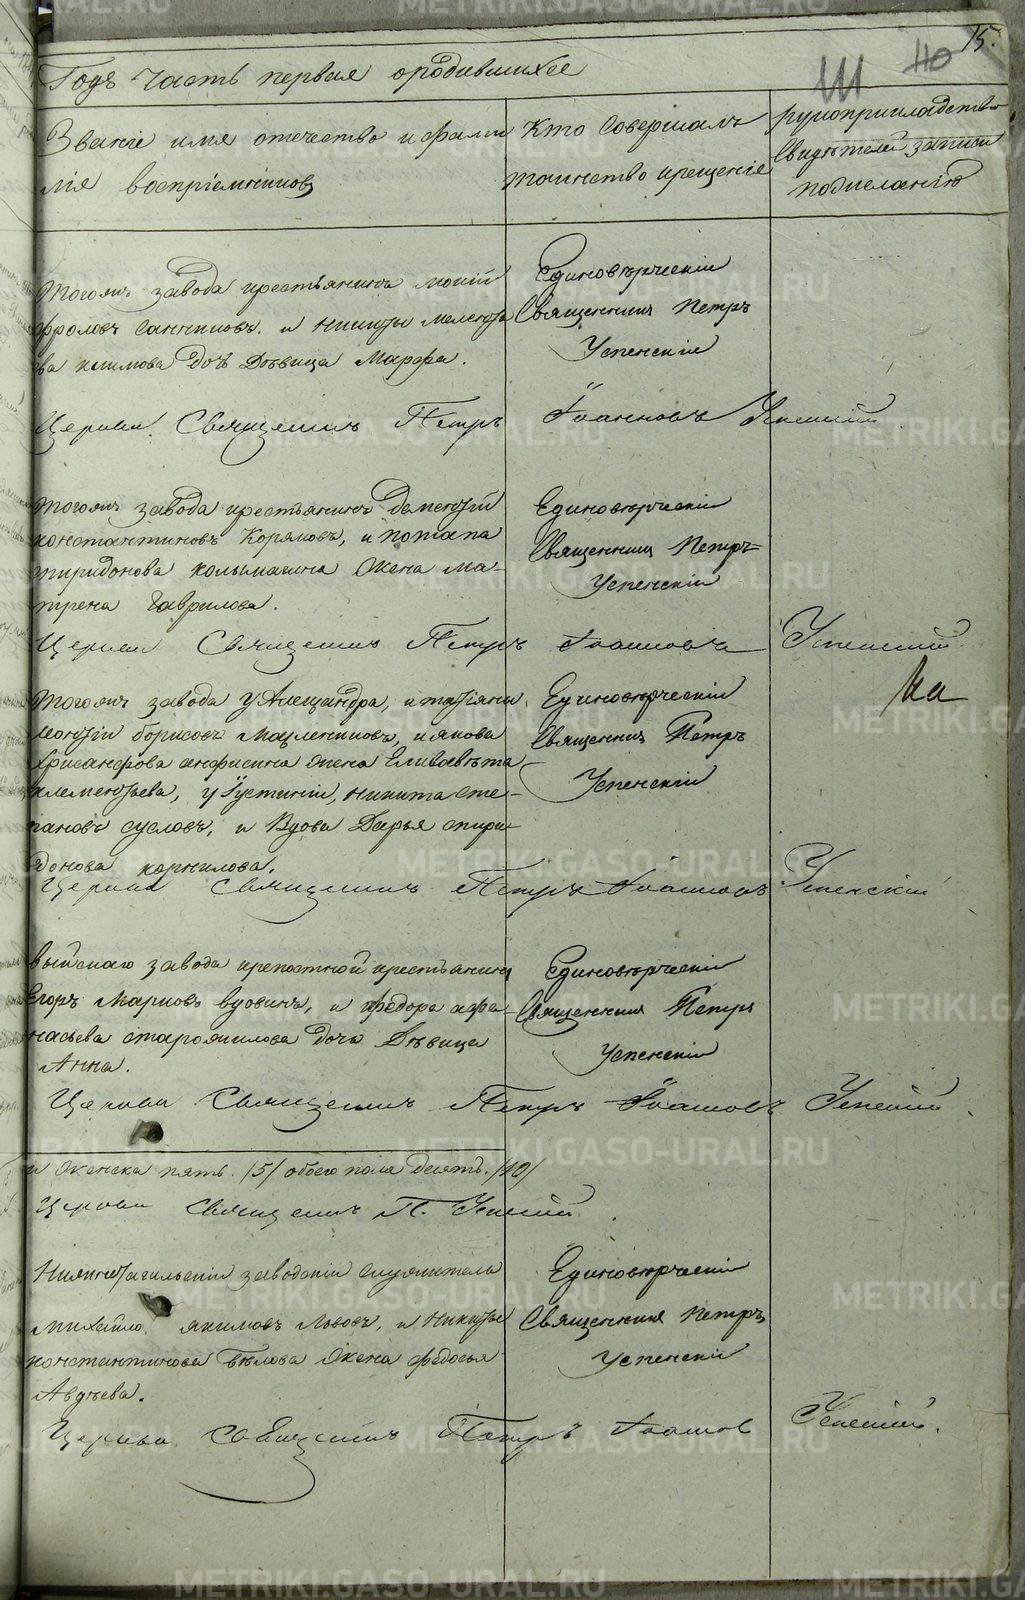 15.
110
111
Годъ часть первая ородившихся
Званiе имя отечество и фами
лiя воспрiемниковъ
Кто Совершалъ
таинство крещенiе
рукоприкладство
свидѣтелей записи
по желанiю
тогожъ завода крестьянинъ мокiй
фроловъ Санниковъ. и никиты мелентье
ва климова дочь Дѣвица Марфа.
Единовѣрческiй
Священникъ Петръ
Успенскiй
Церкви Священникъ Петръ Iоанновъ Успенскiй
тогожъ завода крестьянинъ дементiй
константиновъ Коряковъ, и потапа
спиридонова колымагина Жена ма-
трена Гаврилова.
Единовѣрческiй
Священникъ Петръ
Успенскiй
Церкви Священникъ Петръ Iоанновъ Успенскiй
тогожъ завода у Александра, и татьяны
леонтiй борисовъ Масленниковъ, и якова
Хрисанфова анфисина жена Елисавѣта
клементьева, у Iустинiи, никита сте-
пановъ сусловъ, и Вдова Дарья спири-
донова корнилова.
Единовѣрческiй
Священникъ Петръ
Успенскiй
Церкви Священникъ Петръ Iоанновъ Успенскiй
выйскаго завода крепостной крестьянинъ
Егоръ Марковъ вдовинъ, и федора афа-
насьева старожилова дочь Дѣвица
Анна.
Единовѣрческiй
Священникъ Петръ
Успенскiй
Церкви Священникъ Петръ Iоанновъ Успенскiй
и женска пять. /5/ обоего пола десять. /10/
Церкви Священникъ П. Успенскiй
Нижнетагильскiй заводскiй служитель
михайло якимовъ Львовъ, и Никиты
константинова Бѣлова Жена федосья
Авдѣева.
Единовѣрческiй
Священникъ Петръ
Успенскiй
Церкви Священникъ Петръ Iоанновъ Успенскiй.
METRIKI.GASO-URAL.RU